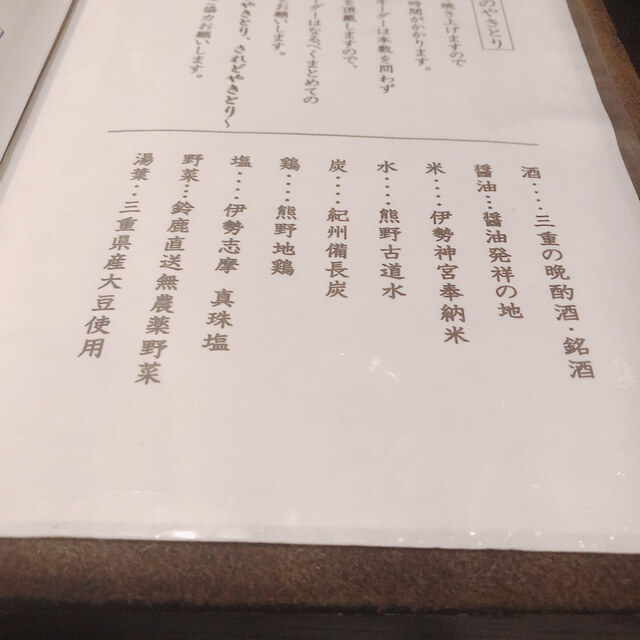 のやきとり
焼き上げますので
時間がかります。
オーダーは本数を問わず
を頂戴しますので、
ーダーはなるべくまとめての
お願いします。
やきとり、されどやきとり～
ご協力お願いします。
酒‥‥三重の晩酌酒・銘酒
醤油‥醤油発祥の地
米‥‥伊勢神宮奉納米
水‥‥熊野古道水
炭‥‥紀州備長炭
鶏‥‥熊野地鶏
塩‥‥伊勢志摩 真珠塩
野菜‥鈴鹿直送無農薬野菜
湯葉‥三重県産大豆使用